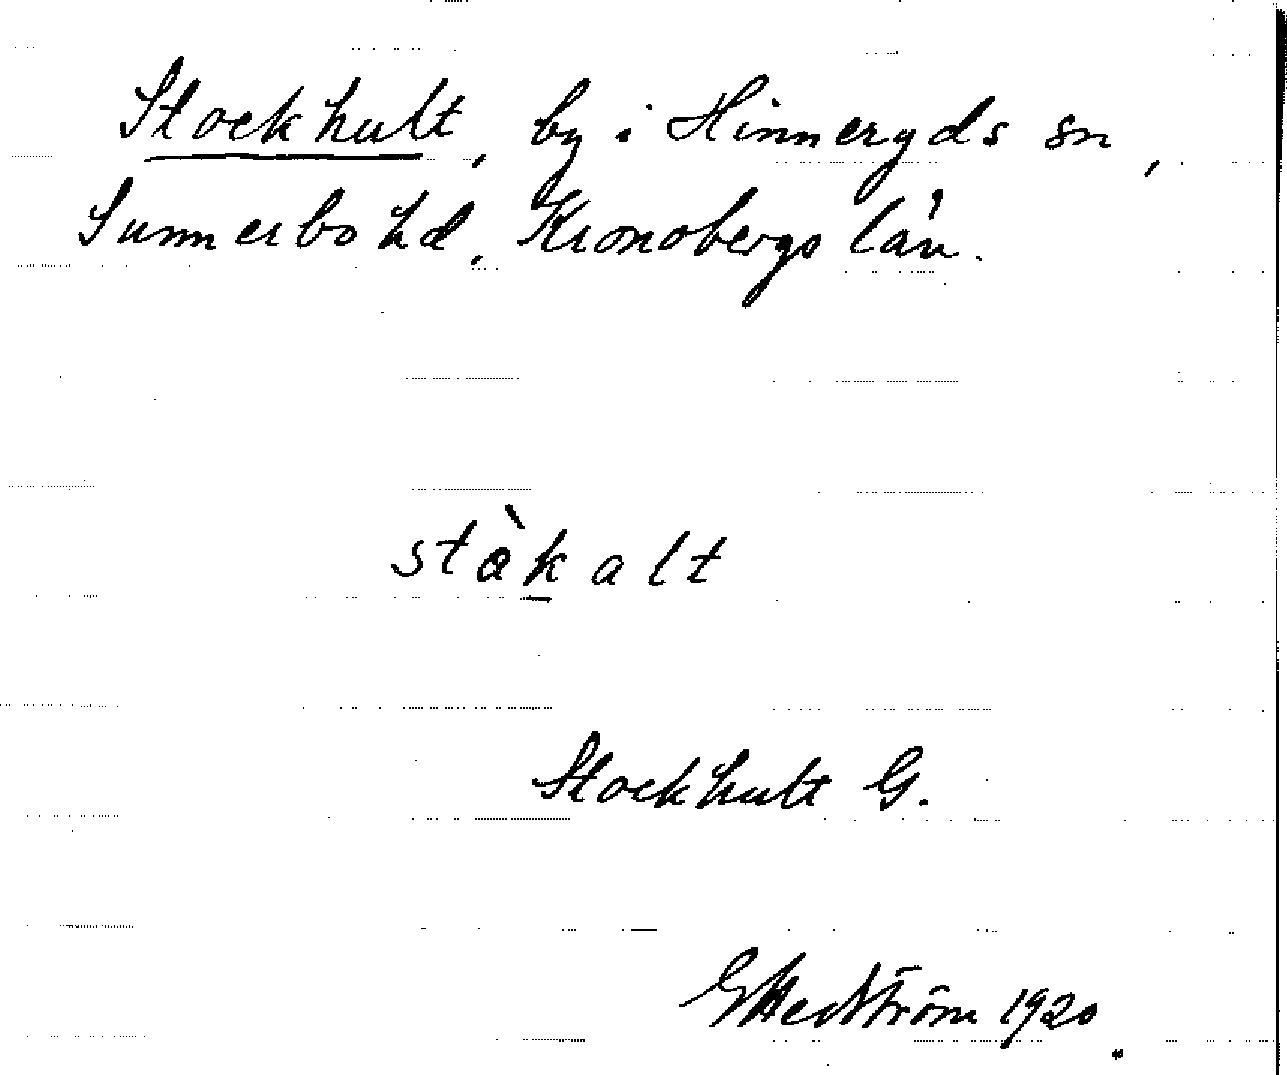 Stockhult, by i Hinneryds sn,
Sunnerbo hd, Kronobergs län.
stàkalt
Stockhult G.
G Hedström 1920